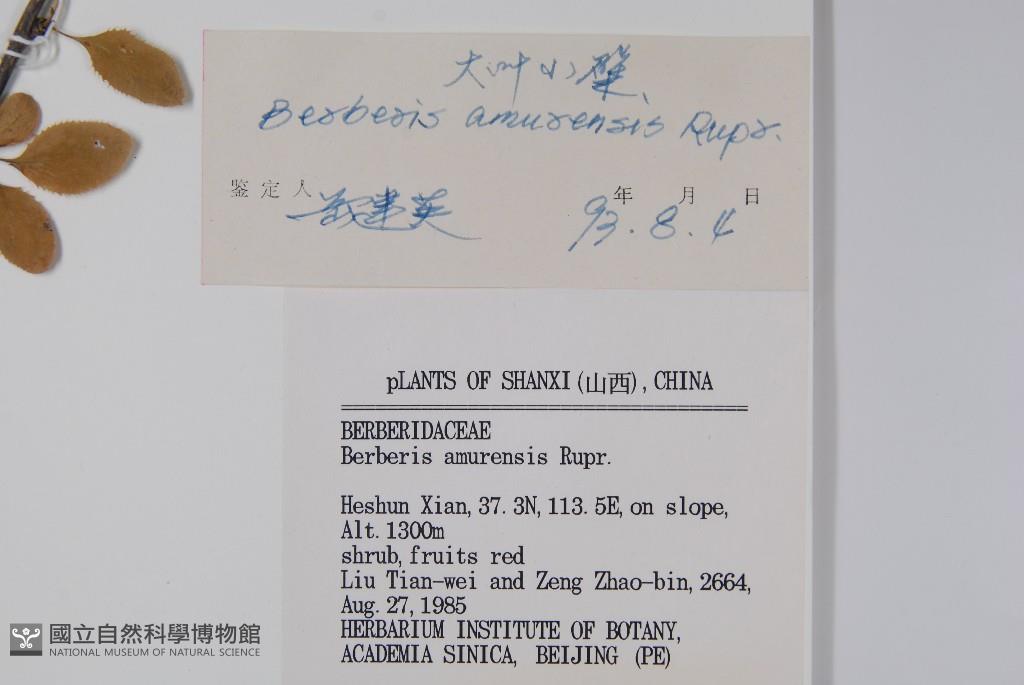 大叶小檗
Berberis amurensis Rupr.
鉴定人 建英 年 月 日
93.8.4
pLANTS OF SHANXI(山西), CHINA
BERBERIDACEAE
Berberis amurensis Rupr.
Heshun Xian, 37.3N, 113.5E, on slope,
Alt. 1300m
shrub, fruits red
Liu Tian-wei and Zeng Zhao-bin, 2664,
Aug. 27, 1985
HERBARIUM INSTITUTE OF BOTANY,
ACADEMIA SINICA, BEIJING (PE)
國立自然科學博物館
NATIONAL MUSEUM OF NATURAL SCIENCE